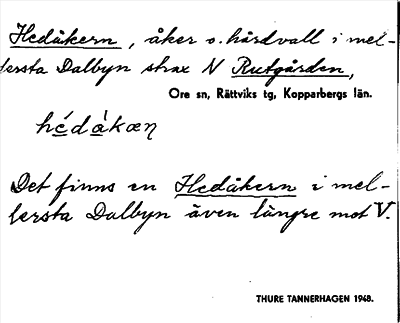 Hedåkern, åker o. hårdvall i mel-
lersta Dalbyn strax N Rutgården,
Ore sn, Rättviks tg, Kopparbergs län.
hédàkæη
Det finns en Hedåkern i mel-
lersta Dalbyn även längre mot V.
THURE TANNERHAGEN 1948.